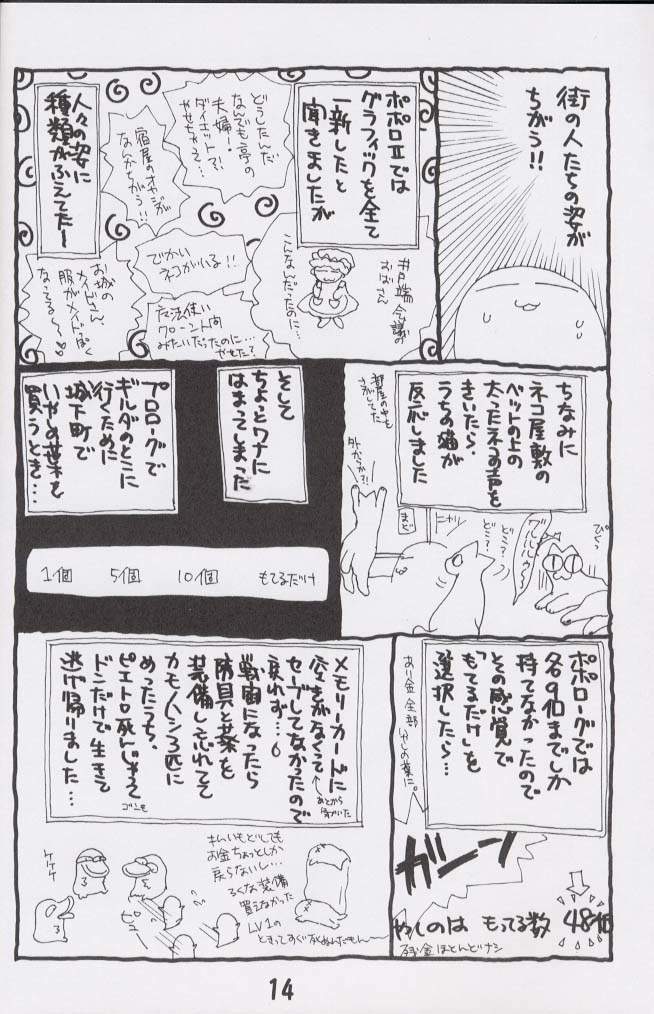 街の人たちの姿が
ちがう!!
ポポロⅡでは
グラフィックを全て
一新したと
聞きましたが
どうしたんだ
なんでも亭の
夫婦!
ダイエット?!
やせちゃって…
宿屋のオヤジが
なんかちがう!!
人々の姿に
種類がふえてたー
井戸端会議の
おばさん
こんなんだったのに…
でかい
ネコがいる!!
お城の
メイドさん、
服がメイドっぽく
なってる〜
みたいだったのに…
やせた?
ちなみに
ネコ屋敷の
ベットの上の
太ったネコの声を
きいたら、
うちの猫が
反応しました
部屋の中も
さがしてた
外からか?!
まど
ニャッ
どこ?
どこ?
ぴくっ
そして
ちょっとワナに
はまってしまった
プロローグで
ギルダのとこに
行くために
城下町で
いやしの葉を
買うとき…
1個 5個 10個 もてるだけ
ポポローグでは
各9個までしか
持てなかったので
その感覚で
「もてるだけ」を
選択したら…
あり金全部いやしの葉に。
ガーン
いやしのは もってる数 48個
残金ほとんどナシ
メモリーカードに
空きがなくて
セーブしてなかったので
戻れず…
あとから
気がついた
戦闘になったら
防具と葉を
装備し忘れてて
カモノハシ3匹に
めったうち、
ピエトロ死んじゃって
ドンだけで生きて
逃げ帰りました…
ゴンも
ケケケ
お金ちょっとしか
戻らないし…
ろくな装備
買えなかった
LV1の
14